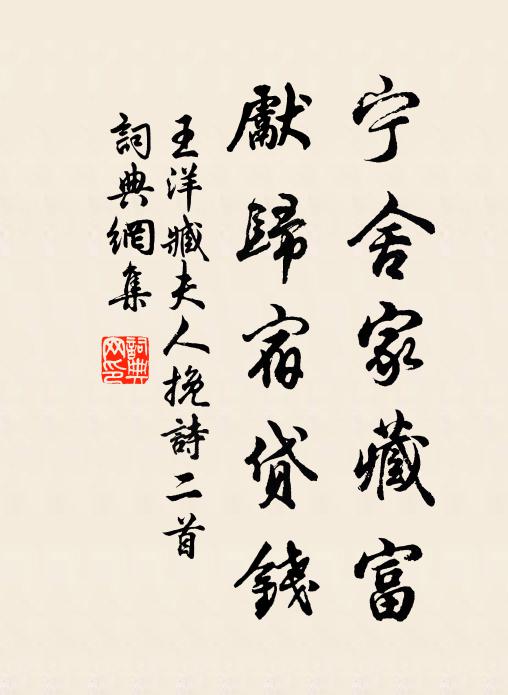 宁舍家藏富
獻歸宿貸錢
王洋臧夫人挽詩二首
詞典網集
詞典網印